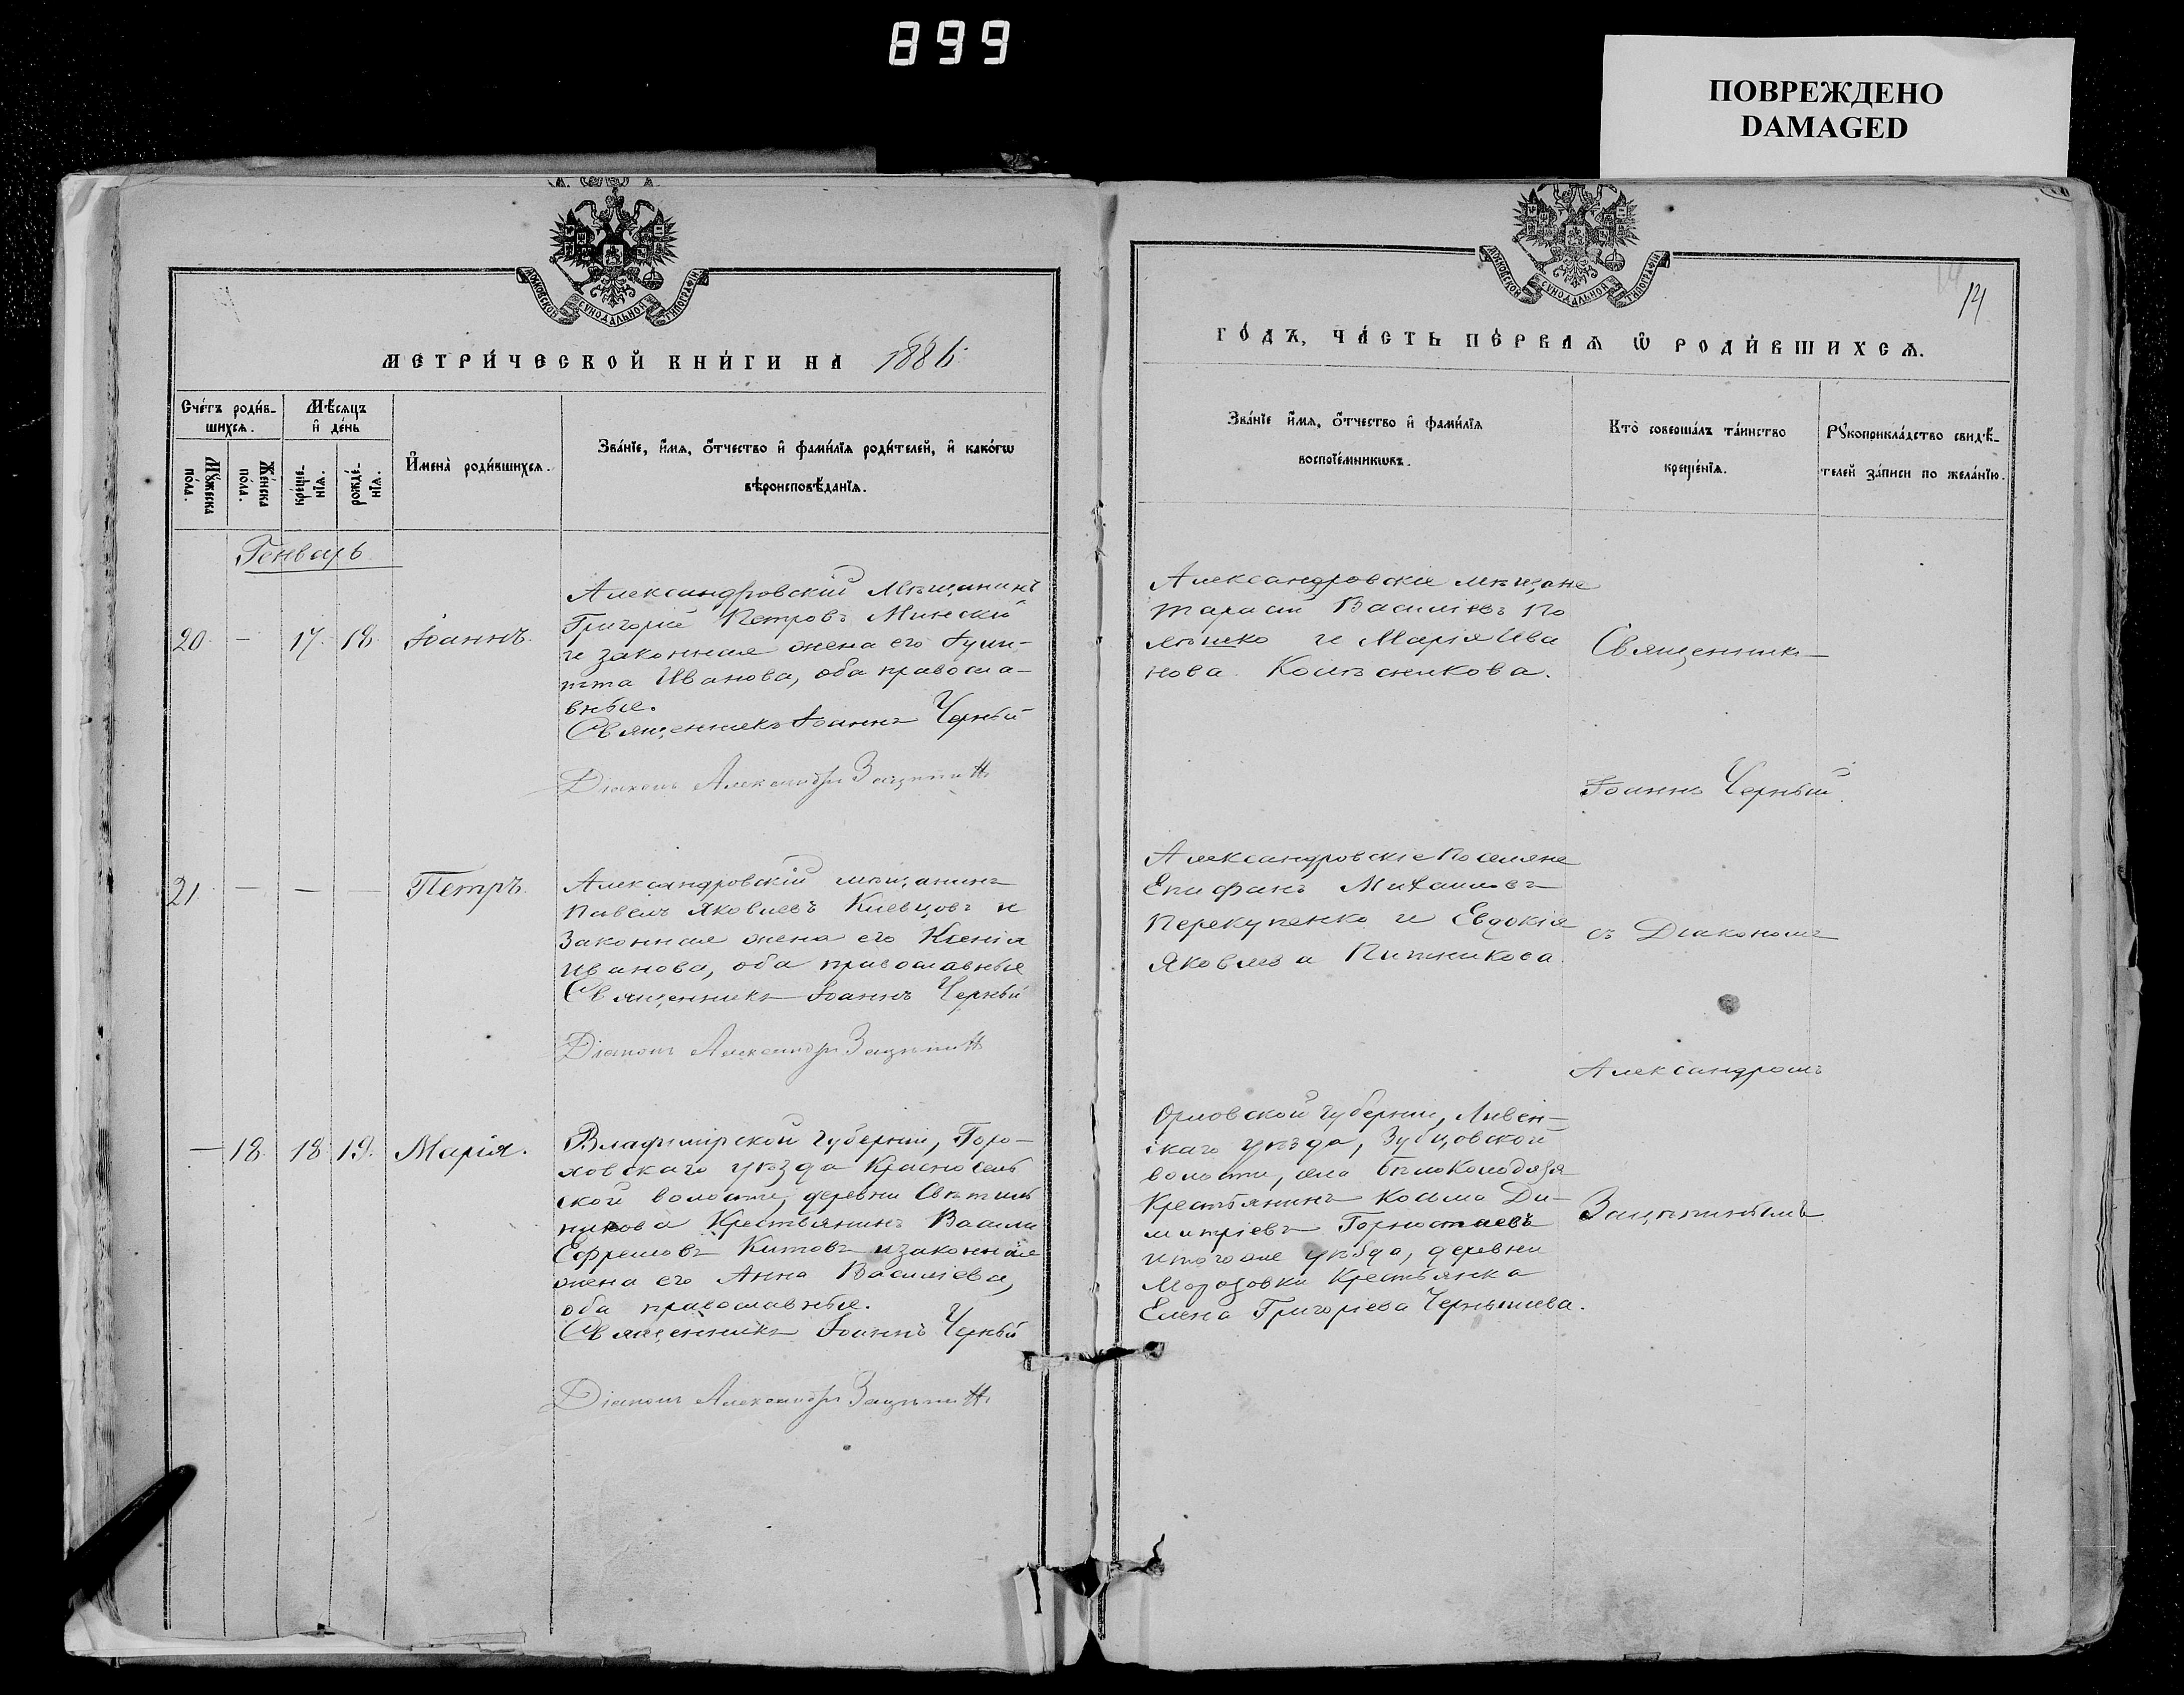 899
ПОВРЕЖДЕНО
DAMAGED
МОСКОВСКОЙ СѴНОДАЛЬНОЙ ТИПОГРАФІИ
МЕТРИ́ЧЕСКОЙ КНИ́ГИ НА 1886
Счетъ роди́в-
шихсѧ.
Мꙋ́жеска
по́ла.
Же́нска
по́ла.
Мѣ́сѧцъ
и҆ де́нь
креще́-
нїѧ.
рожде́-
нїѧ.
И҆мена̀ роди́вшихсѧ.
Зва́нїе, и҆́мѧ, ѻ҆́тчество и҆ фами́лїѧ роди́телей, и҆ како́гѡ
вѣроисповѣ́данїѧ.
Генварь
20. — 17. 18. Іоаннъ.
Александровскій Мѣщанинъ
Григорій Петровъ Минскій
и законная жена его Іули-
тта Иванова, оба правосла-
вные.
Священникъ Іоаннъ Черный
Діаконъ Александръ
21. — — — Петръ.
Александровскій мѣщанинъ
Павелъ Яковлевъ Киевцовъ и
Законная жена его Ксенія
Иванова, оба православные
Священникъ Іоаннъ Черный
Діаконъ Александръ
— 18. 18 19. Марія.
Владимірской губерніи, Горо-
ховскаго уѣзда Красносель
ской волости, деревни Свѣтиль
никова Крестьянинъ Васили
Ефремовъ Китовъ и законная
жена его Анна Василіева,
оба православные.
Священникъ Іоаннъ Черный
Діаконъ Александръ
МОСКОВСКОЙ СѴНОДАЛЬНОЙ ТИПОГРАФІИ
14
ГО́ДЪ, ЧА́СТЬ ПЕ́РВАѦ Ѡ҆ РОДИ́ВШИХСѦ.
Зва́нїе и҆́мѧ, ѻ҆́тчество и҆ фами́лїѧ
воспрїе́мникѡвъ.
Кто̀ соверша́лъ та́инство
креще́нїѧ.
Рꙋкоприкла́дство свидѣ́-
телей за́писи по жела́нїю.
Александровскіе мѣщане
Тарасій Василіевъ По
лѣшко и Марія Ива
нова Колѣсникова.
Священникъ
Іоаннъ Черный.
Александровскіе поселяне
Епифанъ Михаиловъ
Перекупенко и Евдокія
Яковлева Питникова.
съ Діакономъ
Александромъ
Орловской губерніи, Ливен-
скаго уѣзда, Зубцовской
волости, села Бѣлоколодязя
Крестьянинъ Козьма Ди-
митріевъ Горностаевъ
и того же уѣзда, деревни
Морозовки Крестьянка
Елена Григоріева Чернышева.
Зацѣпинымъ